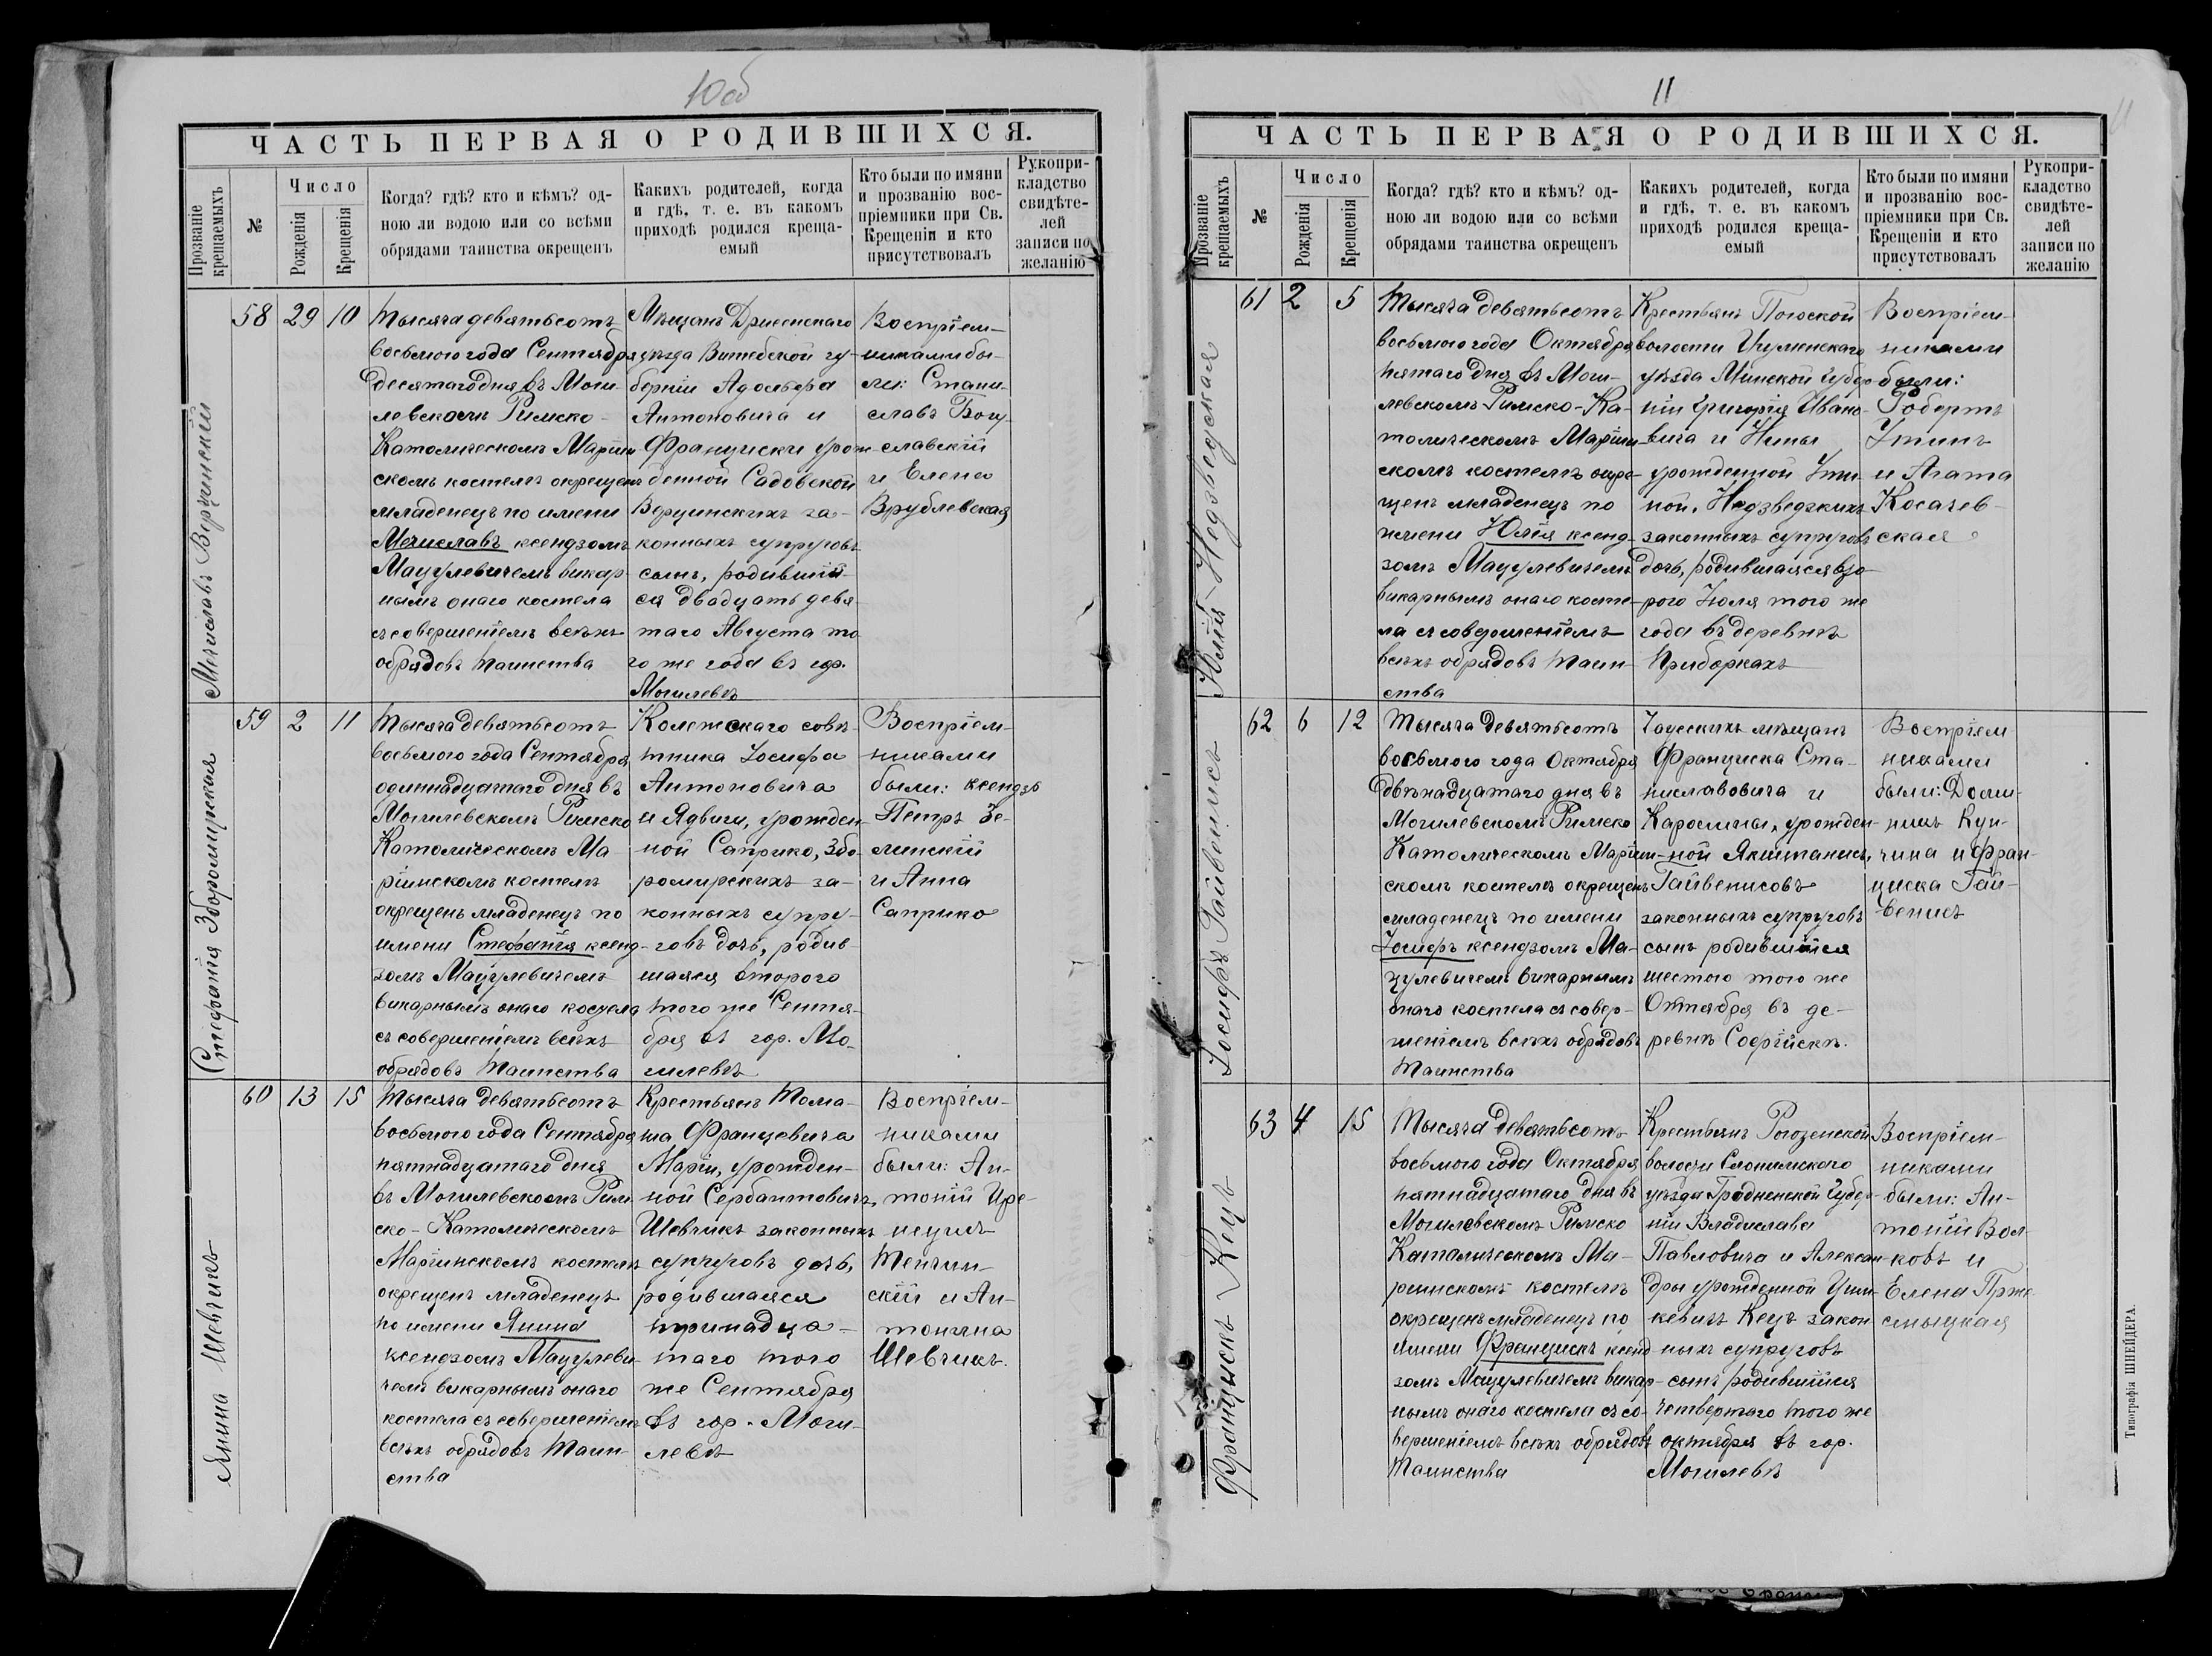 10об
ЧАСТЬ ПЕРВАЯ О РОДИВШИХСЯ.
Прозваніе крещаемыхъ
№
Число
Рожденія
Крещенія
Когда? гдѣ? кто и кѣмъ? од-
ною ли водою или со всѣми
обрядами таинства окрещенъ
Какихъ родителей, когда
и гдѣ, т. е. въ какомъ
приходѣ родился креща-
емый
Кто были по имяни
и прозванію вос-
пріемники при Св.
Крещеніи и кто
присутствовалъ
Рукопри-
кладство
свидѣте-
лей
записи по
желанію
Мечиславъ Верцинскій
58 29 10
Тысяча девятьсотъ
восьмого года Сентября
десятаго дня въ Моги-
левскомъ Римско-
Католическомъ Маріин
скомъ костелѣ окрещенъ
младенецъ по имени
Мечиславъ ксендзомъ
Мацулевичемъ викар-
нымъ онаго костела
съ совершеніемъ всѣхъ
обрядовъ таинства
Мѣщанъ Дрисенскаго
уѣзда Витебской гу-
берніи Адольфа
Антоновича и
Франциски урож-
денной Садовской
Верцинскихъ за-
конныхъ супруговъ
сынъ, родившій-
ся двадцать девя-
таго Августа то
го же года въ гор.
Могилевѣ
Воспріем-
никами бы-
ли: Стани-
славъ Богу-
славскій
и Елена
Врублевская
Стефанія Зборомирская
59 2 11
Тысяча девятьсотъ
восьмого года Сентября
одиннадцатаго дня въ
Могилевскомъ Римско
Католическомъ Ма-
ріинскомъ костелѣ
окрещенъ младенецъ по
имени Стефанія ксенд-
зомъ Мацулевичемъ
викарнымъ онаго костела
съ совершеніемъ всѣхъ
обрядовъ таинства
Колежскаго совѣ-
тника Іосифа
Антоновича
и Ядвиги, урожден-
ной Саприко, Збо-
ромирскихъ за-
конныхъ супру-
говъ дочь, родив-
шаяся второго
того же Сентя-
бря въ гор. Мо-
гилевѣ
Воспріем-
никами
были: ксендзъ
Петръ Зе-
линскій
и Анна
Саприко
Янина Шевчикъ
60 13 15
Тысяча девятьсотъ
восьмого года Сентября
пятнадцатаго дня
въ Могилевскомъ Рим
ско-Католическомъ
Маріинскомъ костелѣ
окрещенъ младенецъ
по имени Янина
ксендзомъ Мацулеви
чемъ викарнымъ онаго
костела съ совершеніемъ
всѣхъ обрядовъ таин-
ства
Крестьянъ Тома-
ша Францевича
Маріи, урожден-
ной Сербантовичъ,
Шевчикъ законныхъ
супруговъ дочь,
родившаяся
тринадца-
таго того
же Сентября
въ гор. Моги-
левѣ
Воспріем-
никами
были: Ан-
тоній
Тенчин-
скій и Ан-
тонина
Шевчикъ.
11
ЧАСТЬ ПЕРВАЯ О РОДИВШИХСЯ.
Прозваніе крещаемыхъ
№
Число
Рожденія
Крещенія
Когда? гдѣ? кто и кѣмъ? од-
ною ли водою или со всѣми
обрядами таинства окрещенъ
Какихъ родителей, когда
и гдѣ, т. е. въ какомъ
приходѣ родился креща-
емый
Кто были по имяни
и прозванію вос-
пріемники при Св.
Крещеніи и кто
присутствовалъ
Рукопри-
кладство
свидѣте-
лей
записи по
желанію
Юлія Недзведзкая
61 2 5
Тысяча девятьсотъ
восьмого года Октября
пятаго дня въ Моги-
левскомъ Римско-Ка-
толическомъ Маріин
скомъ костелѣ окре-
щенъ младенецъ по
имени Юлія ксенд-
зомъ Мацулевичемъ
викарнымъ онаго косте-
ла съ совершеніемъ
всѣхъ обрядовъ таин-
ства
Крестьянъ Погоской
волости Игуменскаго
уѣзда Минской Губер-
ніи Григорія Ивано-
вича и Нины
урожденной Ути-
ной, Недзведзкихъ
законныхъ супруговъ
дочь, родившаяся вто
рого Іюля того же
года въ деревнѣ
Приборкахъ
Воспріем-
никами
были:
Робертъ
Утинъ
и Агата
Косачев-
ская
Іосифъ Гайвенисъ
62 6 12
Тысяча девятьсотъ
восьмого года Октября
двѣнадцатаго дня въ
Могилевскомъ Римско
Католическомъ Маріин-
скомъ костелѣ окрещенъ
младенецъ по имени
Іосифъ ксендзомъ Ма-
цулевичемъ викарнымъ
онаго костела съ совер-
шеніемъ всѣхъ обрядовъ
таинства
Чаусскихъ мѣщанъ
Франциска Ста-
ниславовича и
Каролины, урожден-
ной Якштанисъ,
Гайвенисовъ
законныхъ супруговъ
сынъ родившійся
шестого того же
Октября въ де-
ревнѣ Софійскѣ.
Воспріем
никами
были: Доми-
никъ Кун-
чина и Фран-
циска Гай-
венисъ
Францискъ Кецъ
63 4 15
Тысяча девятьсотъ
восьмого года Октября
пятнадцатаго дня въ
Могилевскомъ Римско
Католическомъ Ма-
ріинскомъ костелѣ
окрещенъ младенецъ по
имени Францискъ ксенд
зомъ Мацулевичемъ викар-
нымъ онаго костела съ со-
вершеніемъ всѣхъ обрядовъ
таинства
Крестьянъ Рогозенской
волости Слонимскаго
уѣзда Гродненской Губер-
ніи Владислава
Павловича и Алексан-
дры урожденной Цим-
кевичъ Кецъ закон
ныхъ супруговъ
сынъ родившійся
четвертаго того же
октября въ гор.
Могилевѣ
Воспріем-
никами
были: Ан-
тоній Вол-
ковъ и
Елена Прже
смыцкая
Типографія ШНЕЙДЕРА.